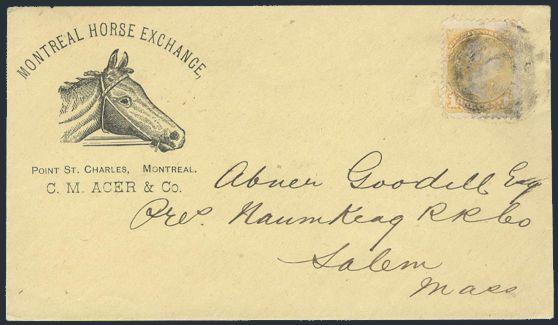 MONTREAL HORSE EXCHANGE,
POINT ST. CHARLES, MONTREAL.
C. M. ACER & Co.
Abner Goodell Esq
Pres. Naumkeag RR Co
Salem
Mass